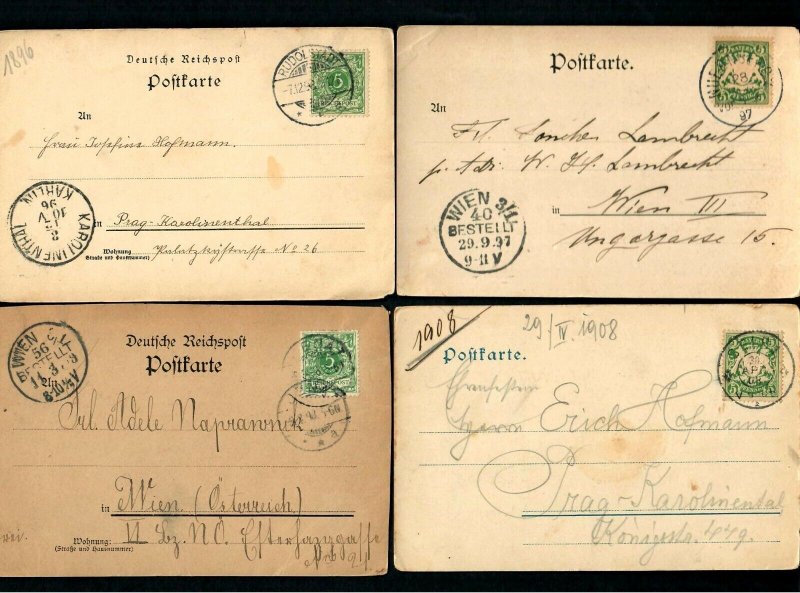 1896
Deutsche Reichspost
Postkarte
RUDOLSTADT
An
Frau Josefine Hofmann.
in Prag-Karolinenthal
Wohnung
(Straße und Hausnummer)
No 26
KAROLINENTHAL
KARLIN
96
Postkarte.
BAYERN
28
97
An
Frl. Lambrecht
p. Adr. W. H. Lambrecht
in Wien III
Ungargasse 15.
WIEN 3/1
40
BESTELLT
29.9.97
9-11 V
Deutsche Reichspost
Postkarte
WIEN
56
BESTELLT
Frl. Adele Naprawnik
in Wien (Österreich)
VI Bz. No. Esterhazygasse
Wohnung:
(Straße und Hausnummer)
1908
29/IV 1908
Postkarte.
Herrn Erich Hofmann
Prag-Karolinental
Königsstr. 449.